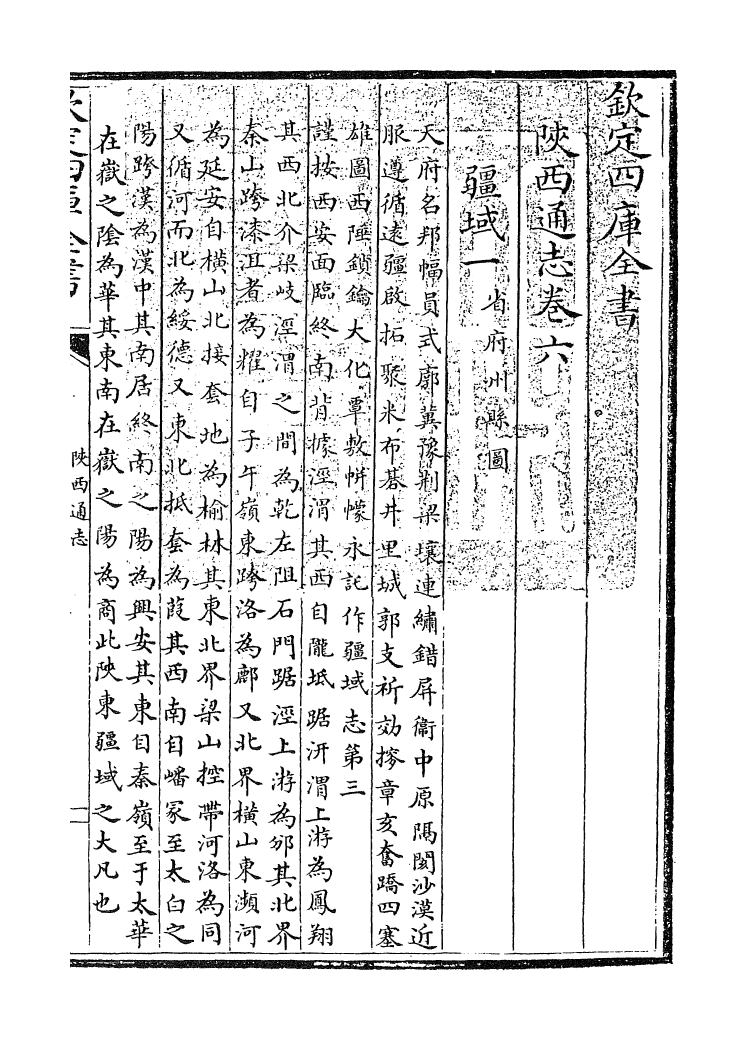 欽定四庫全書
陝西通志卷六
疆域一 省府州縣圖
天府名邦幅員式廓冀豫荆梁壤連繡錯屏衞中原隅閡沙漠近
服遵循逺疆啟拓聚米布碁井里城郭支祈効撐章亥奮蹻四塞
雄圖西陲鎖鑰大化覃敷帡幪永託作疆域志第三
謹按西安面臨終南背據涇渭其西自隴坻踞汧渭上游為鳳翔
其西北介梁岐涇渭之間為乾左阻石門踞涇上游為邠其北界
秦山跨漆沮者為耀自子午嶺東跨洛為鄜又北界橫山東瀕河
為延安自橫山北接套地為榆林其東北界梁山控帶河洛為同
又循河而北為綏德又東北抵套為葭其西南自嶓冢至太白之
陽跨漢為漢中其南居終南之陽為興安其東自秦嶺至于太華
在嶽之陰為華其東南在嶽之陽為商此陝東疆域之大凡也
欽定四庫全書
陝西通志
一